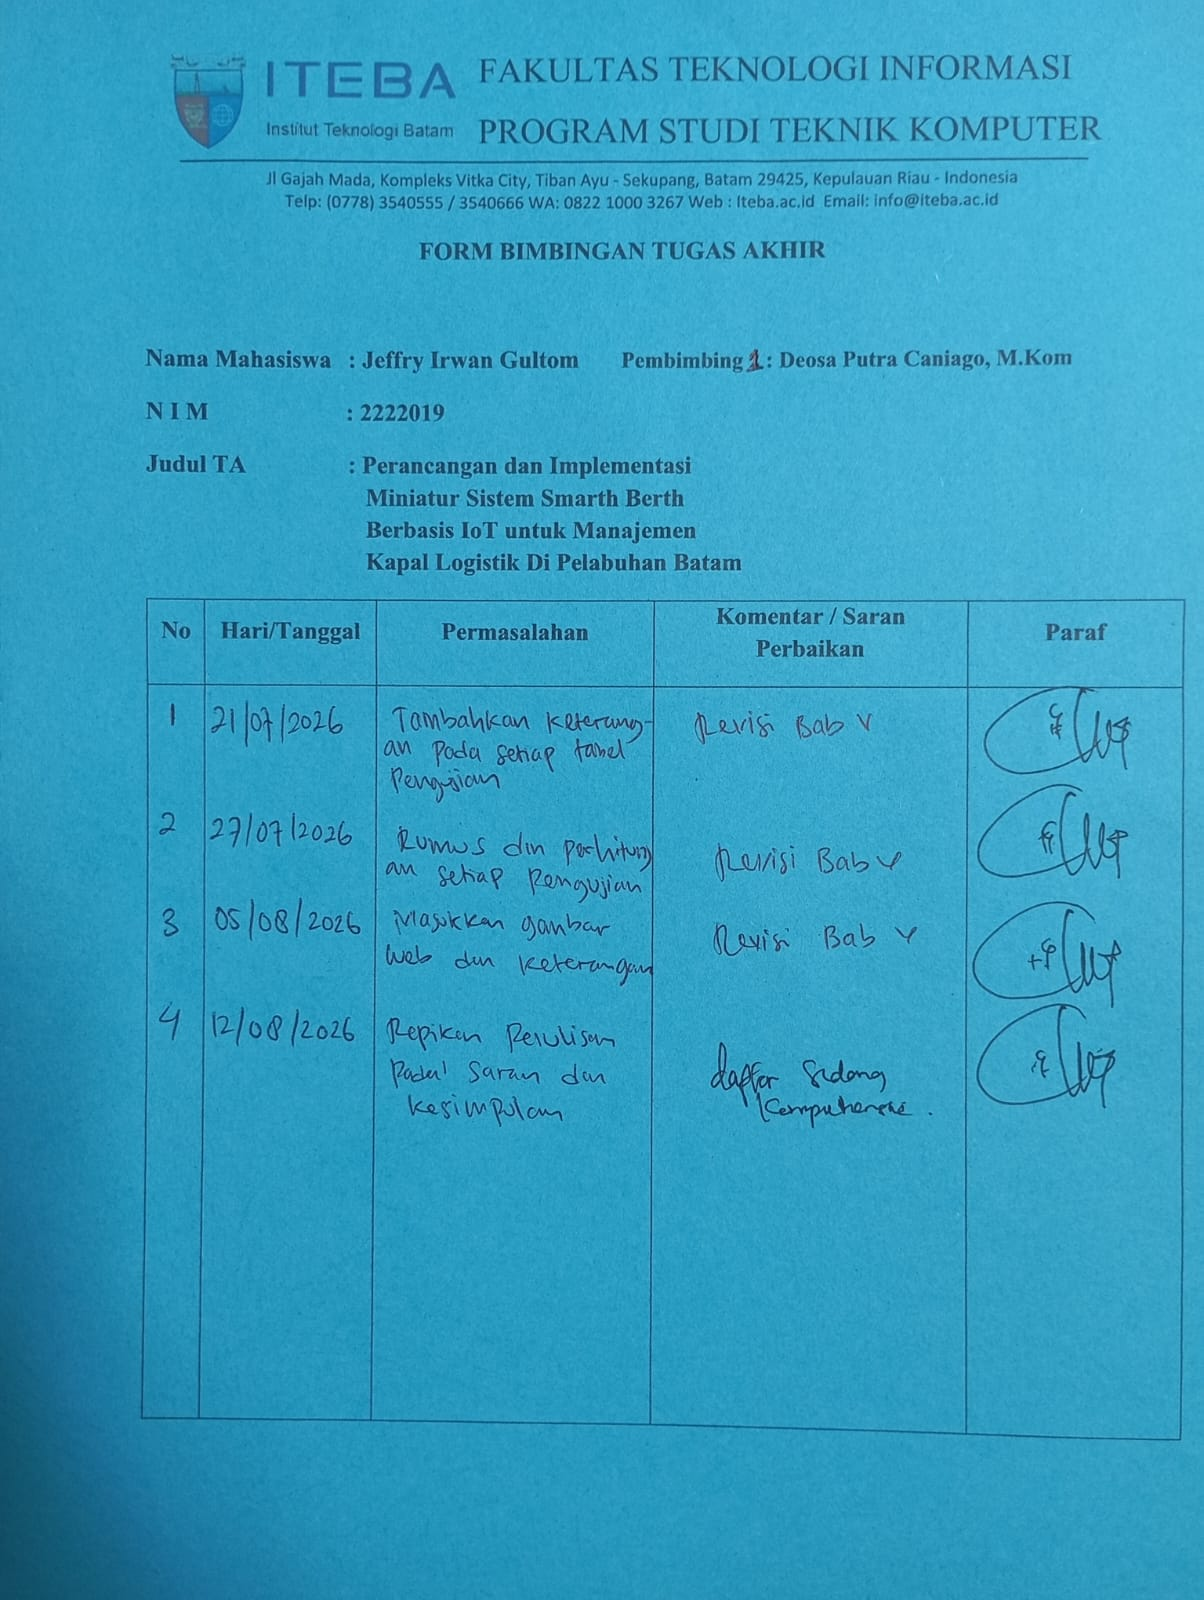 ITEBA
Institut Teknologi Batam
FAKULTAS TEKNOLOGI INFORMASI
PROGRAM STUDI TEKNIK KOMPUTER
Jl Gajah Mada, Kompleks Vitka City, Tiban Ayu - Sekupang, Batam 29425, Kepulauan Riau - Indonesia
Telp: (0778) 3540555 / 3540666 WA: 0822 1000 3267 Web : Iteba.ac.id Email: info@iteba.ac.id
FORM BIMBINGAN TUGAS AKHIR
Nama Mahasiswa : Jeffry Irwan Gultom Pembimbing 1 : Deosa Putra Caniago, M.Kom
N I M : 2222019
Judul TA : Perancangan dan Implementasi
Miniatur Sistem Smarth Berth
Berbasis IoT untuk Manajemen
Kapal Logistik Di Pelabuhan Batam
No Hari/Tanggal Permasalahan Komentar / Saran Perbaikan Paraf
1 21/07/2026 Tambahkan keterang-
an pada setiap tabel
Pengujian
Revisi Bab V
2 27/07/2026 Rumus dan perhitung
an setiap Pengujian
Revisi Bab V
3 05/08/2026 Masukkan gambar
web dan keterangan
Revisi Bab V
4 12/08/2026 Rapikan Penulisan
Pada saran dan
kesimpulan
daftar Sidang
Komprehensif.